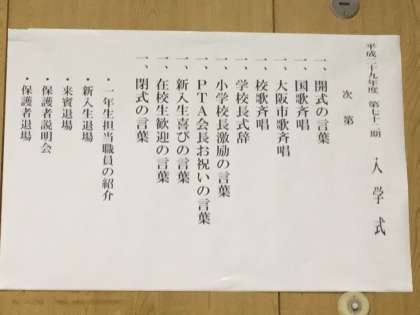 平成二十九年度 第七十一期 入学式
次第
一、開式の言葉
一、国歌斉唱
一、大阪市歌斉唱
一、校歌斉唱
一、学校長式辞
一、小学校長激励の言葉
一、PTA会長お祝いの言葉
一、新入生喜びの言葉
一、在校生歓迎の言葉
一、閉式の言葉
・一年生担当職員の紹介
・新入生退場
・来賓退場
・保護者説明会
・保護者退場